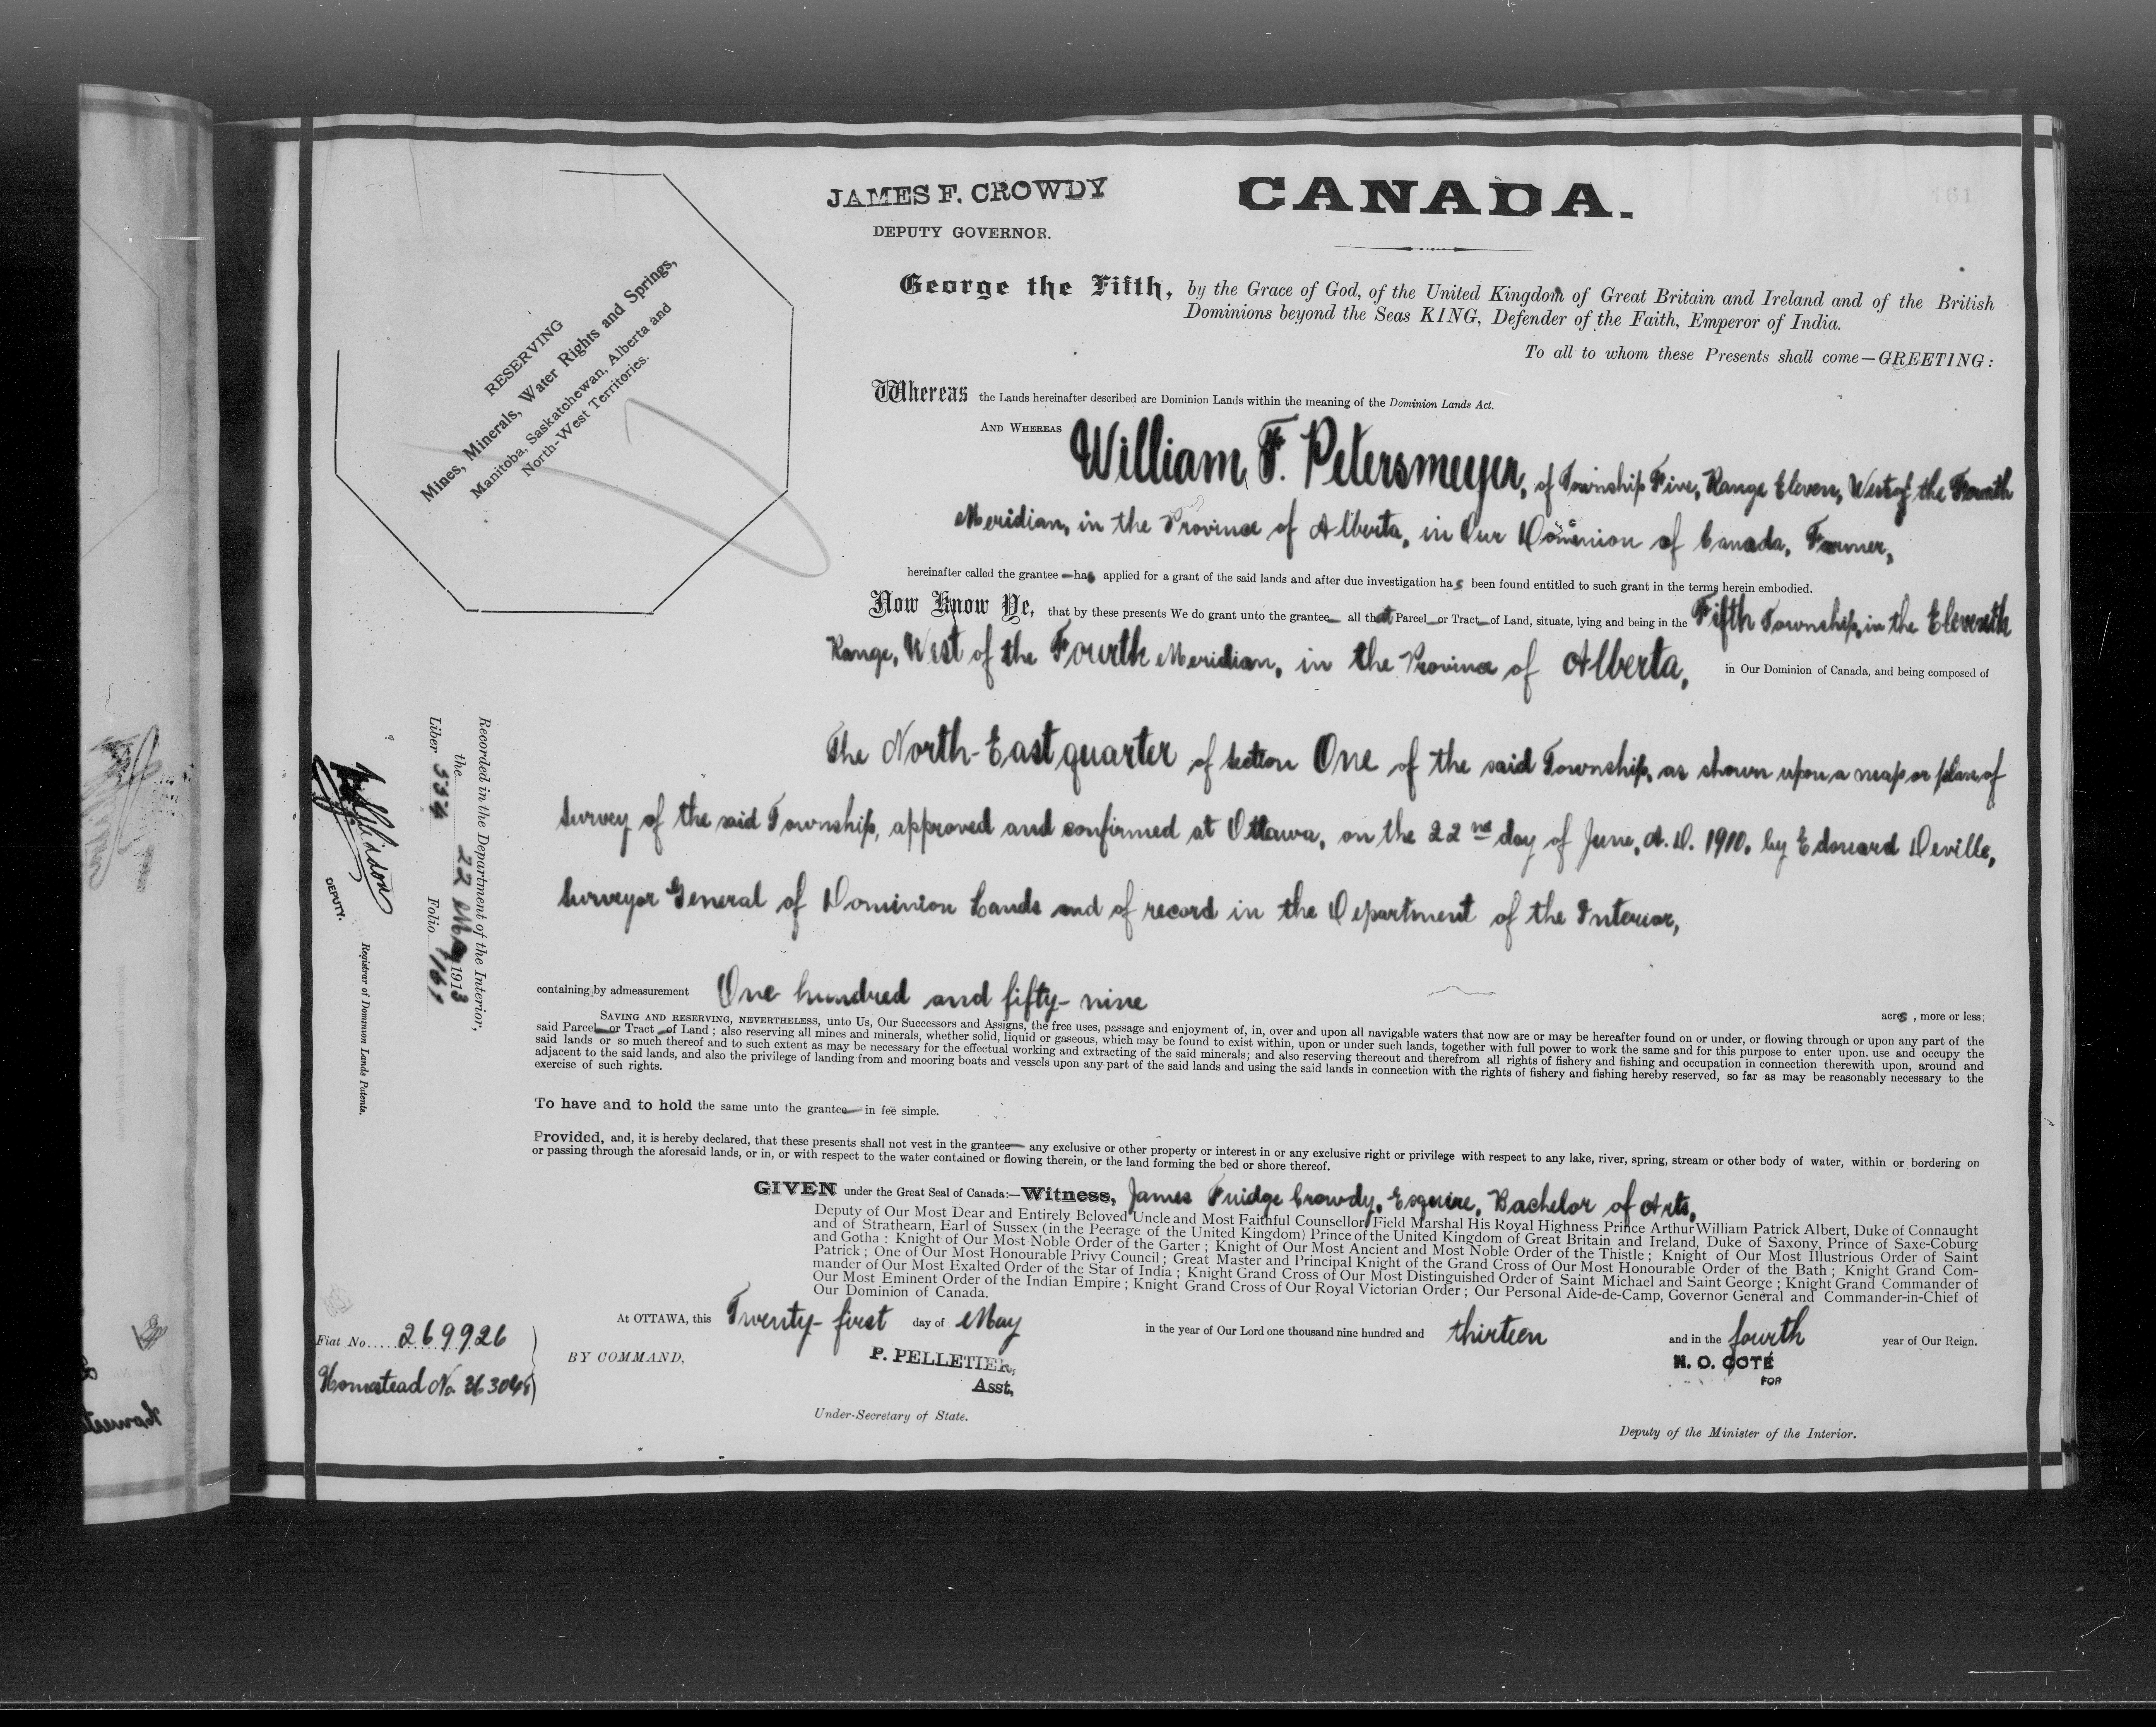 JAMES F. CROWDY
DEPUTY GOVERNOR.
CANADA.
161
RESERVING
Mines, Minerals, Water Rights and Springs,
Manitoba, Saskatchewan, Alberta and
North-West Territories.
George the Fifth, by the Grace of God, of the United Kingdom of Great Britain and Ireland and of the British
Dominions beyond the Seas KING, Defender of the Faith, Emperor of India.
To all to whom these Presents shall come—GREETING:
Whereas the Lands hereinafter described are Dominion Lands within the meaning of the Dominion Lands Act.
AND WHEREAS William F. Petersmeyer, of Township Five, Range Eleven, West of the Fourth
Meridian, in the Province of Alberta, in Our Dominion of Canada, Farmer,
hereinafter called the grantee — has applied for a grant of the said lands and after due investigation has been found entitled to such grant in the terms herein embodied.
Now Know Ye, that by these presents We do grant unto the grantee— all that Parcel—or Tract—of Land, situate, lying and being in the Fifth Township, in the Eleventh
Range, West of the Fourth Meridian, in the Province of Alberta, in Our Dominion of Canada, and being composed of
The North-East quarter of section One of the said Township, as shown upon a map or plan of
survey of the said Township, approved and confirmed at Ottawa, on the 22nd day of June, A.D. 1910, by Edouard Deville,
Surveyor General of Dominion Lands and of record in the Department of the Interior,
containing by admeasurement One hundred and fifty-nine acres, more or less;
SAVING AND RESERVING, NEVERTHELESS, unto Us, Our Successors and Assigns, the free uses, passage and enjoyment of, in, over and upon all navigable waters that now are or may be hereafter found on or under, or flowing through or upon any part of the
said Parcel—or Tract—of Land; also reserving all mines and minerals, whether solid, liquid or gaseous, which may be found to exist within, upon or under such lands, together with full power to work the same and for this purpose to enter upon. use and occupy the
said lands or so much thereof and to such extent as may be necessary for the effectual working and extracting of the said minerals; and also reserving thereout and therefrom all rights of fishery and fishing and occupation in connection therewith upon, around and
adjacent to the said lands, and also the privilege of landing from and mooring boats and vessels upon any part of the said lands and using the said lands in connection with the rights of fishery and fishing hereby reserved, so far as may be reasonably necessary to the
exercise of such rights.
To have and to hold the same unto the grantee— in fee simple.
Provided, and, it is hereby declared, that these presents shall not vest in the grantee— any exclusive or other property or interest in or any exclusive right or privilege with respect to any lake, river, spring, stream or other body of water, within or bordering on
or passing through the aforesaid lands, or in, or with respect to the water contained or flowing therein, or the land forming the bed or shore thereof.
GIVEN under the Great Seal of Canada:—Witness, James Fuidge Crowdy, Esquire, Bachelor of Arts,
Deputy of Our Most Dear and Entirely Beloved Uncle and Most Faithful Counsellor Field Marshal His Royal Highness Prince Arthur William Patrick Albert, Duke of Connaught
and of Strathearn, Earl of Sussex (in the Peerage of the United Kingdom) Prince of the United Kingdom of Great Britain and Ireland, Duke of Saxony, Prince of Saxe-Coburg
and Gotha: Knight of Our Most Noble Order of the Garter; Knight of Our Most Ancient and Most Noble Order of the Thistle; Knight of Our Most Illustrious Order of Saint
Patrick; One of Our Most Honourable Privy Council; Great Master and Principal Knight of the Grand Cross of Our Most Honourable Order of the Bath; Knight Grand Com-
mander of Our Most Exalted Order of the Star of India; Knight Grand Cross of Our Most Distinguished Order of Saint Michael and Saint George; Knight Grand Commander of
Our Most Eminent Order of the Indian Empire; Knight Grand Cross of Our Royal Victorian Order; Our Personal Aide-de-Camp, Governor General and Commander-in-Chief of
Our Dominion of Canada.
At OTTAWA, this Twenty-first day of May in the year of Our Lord one thousand nine hundred and thirteen and in the fourth year of Our Reign.
BY COMMAND,
P. PELLETIER,
Asst,
Under-Secretary of State.
N. O. COTÉ
FOR
Deputy of the Minister of the Interior.
Recorded in the Department of the Interior,
the 22 MAY 1913
Liber 554 Folio 161
DEPUTY.
Registrar of Dominion Lands Patents.
Fiat No. 269926
Homestead No.